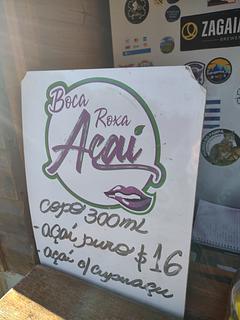 ZAGAIA
BREWERY
Boca
Roxa
Açaí
copo 300ml
- açaí puro $16
- açaí c/cupuaçu